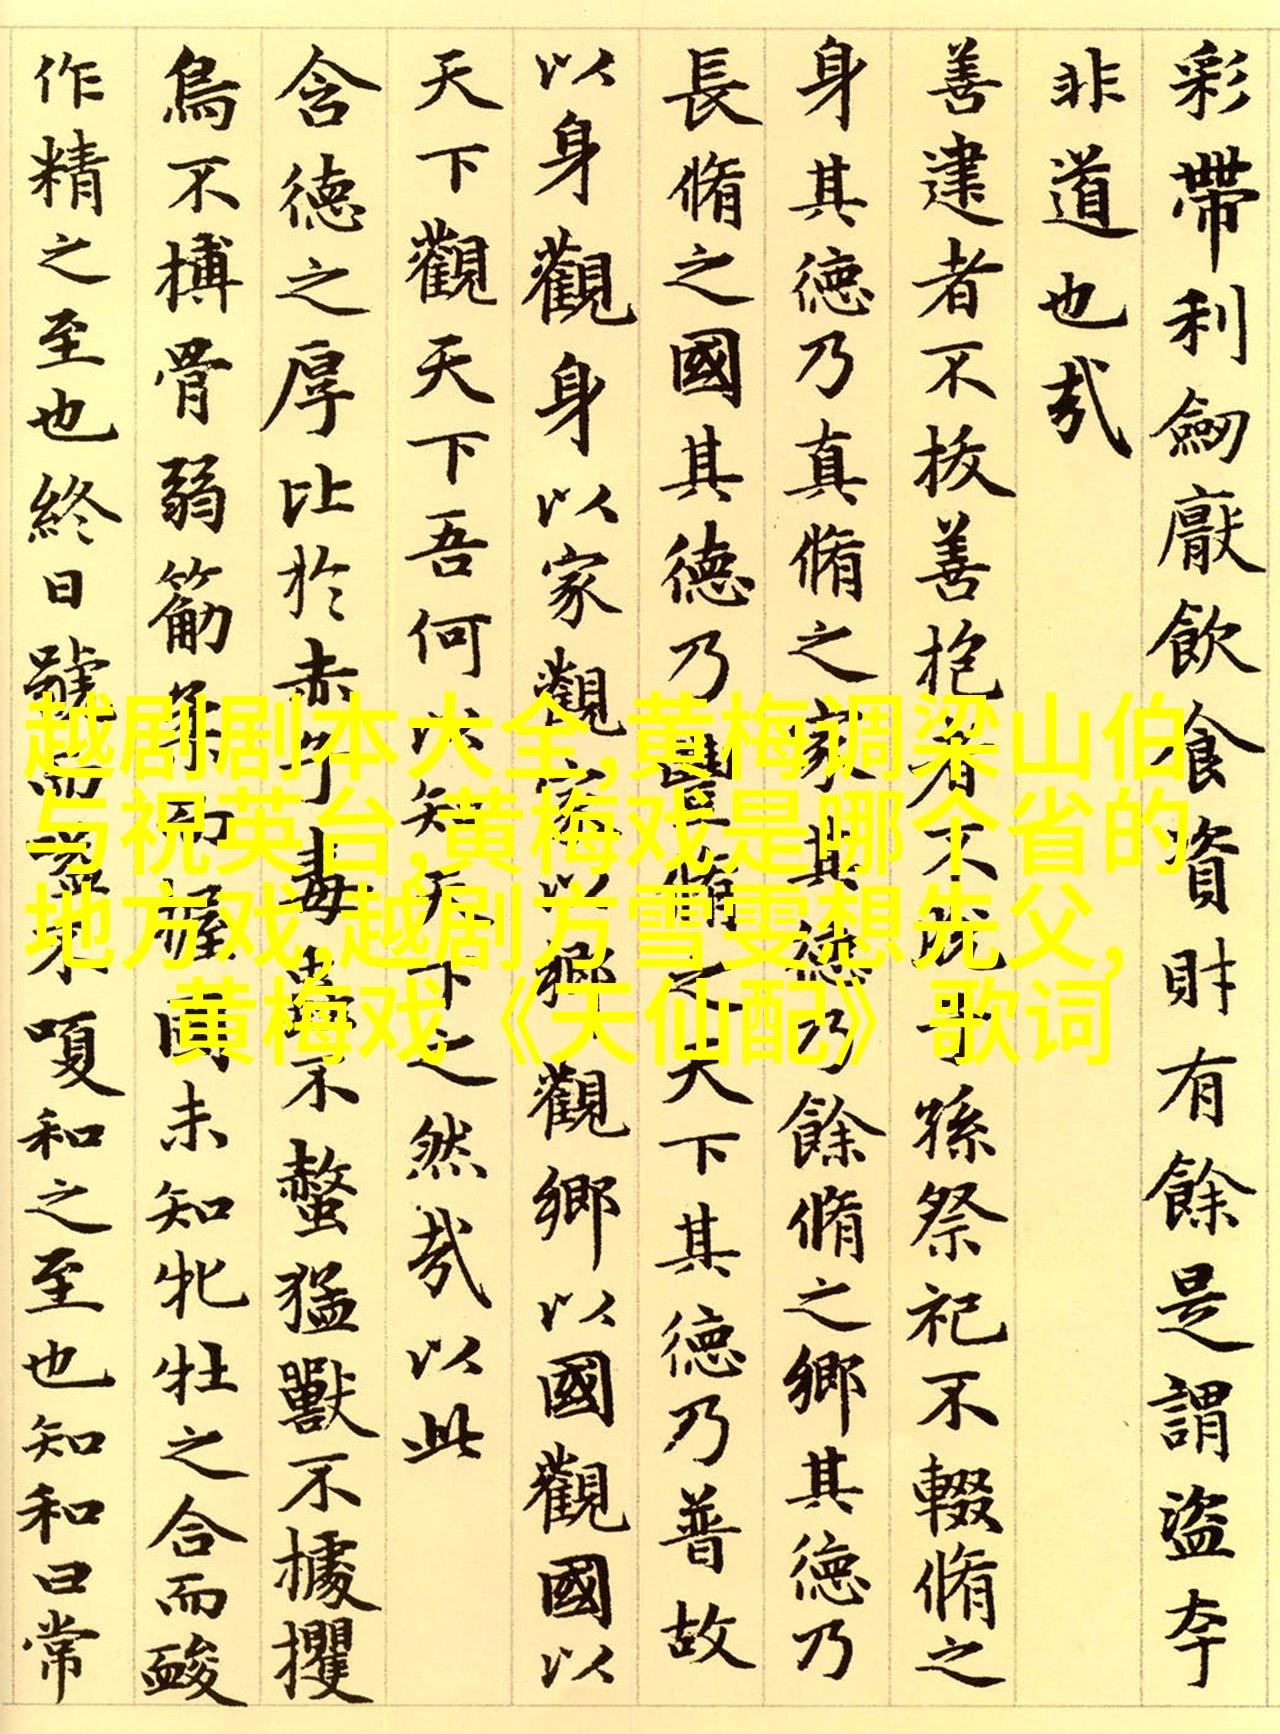 彩帶利劒厭飲食資財有餘是謂盜夸
非道也哉
善建者不拔善抱者不脫子孫祭祀不輟脩之
身其德乃真脩之家其德乃餘脩之鄉其德乃
長脩之國其德乃豐脩之天下其德乃普故
以身觀身以家觀家以鄉觀鄉以國觀國以
天下觀天下吾何以知天下之然哉以此
含德之厚比於赤子毒蟲不螫猛獸不據攫
鳥不搏骨弱筋柔而握固未知牝牡之合而
作精之至也終日號而嗌不嗄和之至也知和曰常
越剧剧本大全,黄梅调梁山伯
与祝英台,黄梅戏是哪个省的
地方戏,越剧方雪雯想先父,
黄梅戏《天仙配》歌词